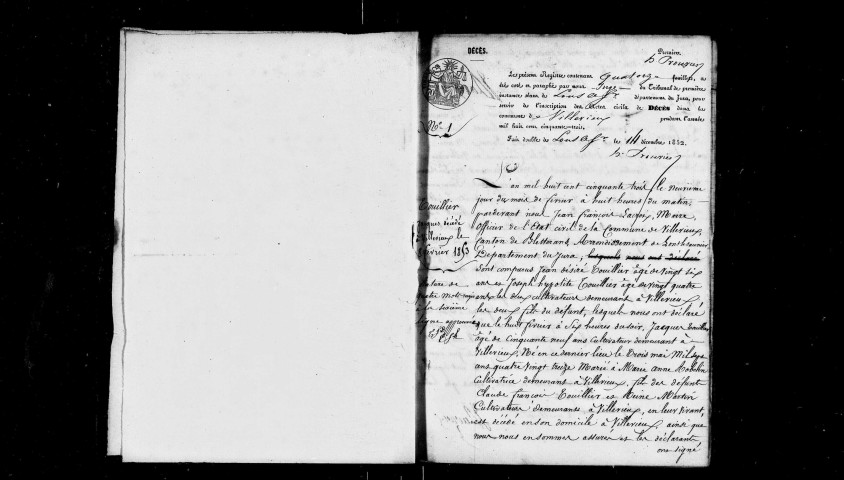 DÉCÈS.
Premier.
Le présent Registre contenant quatorze feuillets, a
été coté et paraphé par nous Juge du Tribunal de première
instance séant de Lons département du Jura, pour
servir à l'inscription des Actes civils de DÉCÈS dans la
commune de Villevieux pendant l'année
mil huit cent cinquante-trois.
Fait double à Lons le 14 décembre 1852.
No. 1
L'an mil huit cent cinquante trois le neuvième
jour du mois de fevrier à huit heures du matin
pardevant nous Jean françois Maire
officier de l'Etat civil de la Commune de Villevieux
Canton de Blettrand, Arrondissement de Lons
Département du Jura, lesquels nous ont déclaré
sont comparus Jean désiré Touillier âgé de vingt six
ans et Joseph hypolite Touillier âgé de vingt quatre
ans les deux cultivateurs demeurant à Villevieux
les deux fils du défunt, lesquels nous ont déclaré
que le huit fevrier à six heures du soir, Jacques Touillier
âgé de cinquante neuf ans cultivateur demeurant à
Villevieux, Né en ce dernier lieu le trois mai Mil sept
ans quatre vingt treize Marié à Marie anne
Cultivatrice demeurant à Villevieux, fil des défunts
Claude françois Touillier et Reine Martin
Cultivateurs demeurants à Villevieux, en leur vivant,
est décédé en son domicile à Villevieux, ainsi que
nous nous en sommes assurés et les déclarants
ont signé
Touillier
Jacques décédé
Villevieux le
fevrier 1853
Rature de
quatre mots
à la sixième
ligne approuvée